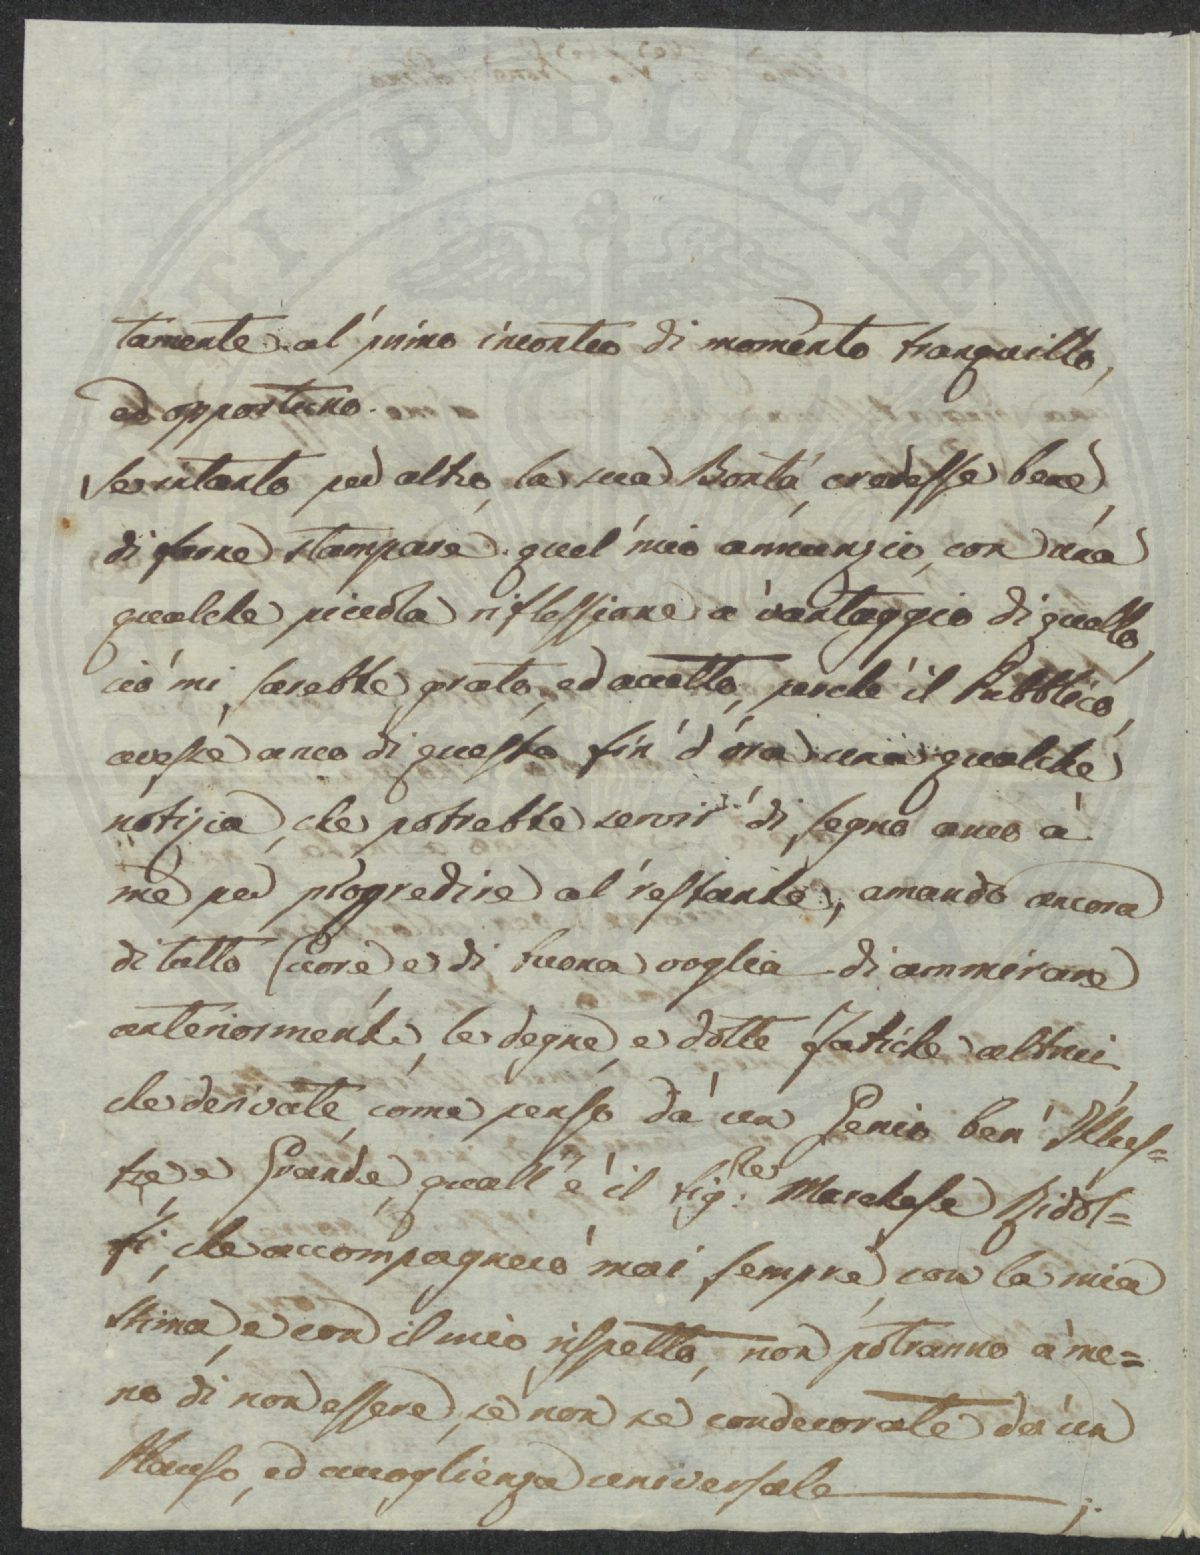 UTILITATI PVBLICAE
tamente al' primo incontro di momento tranquillo,
ed opportuno.
Se intanto per altro, la sua Bontà, credesse bene,
di farne stampare quel' mio annunzio, con una
qualche piccola riflessione a vantaggio di quello,
ciò mi sarebbe grato, ed accetto, perchè il Pubblico,
avesse anco di questo fin' d'ora una qualche
notizia, che potrebbe servir' di segno anco à
me per progredire al' restante, amando ancora
di tutto Cuore e di buona voglia di ammirare
anteriormente, le degne, e dotte fatiche altrui
che derivate, come penso dà un Genio ben' Illus=
tre, e Grande, quall'è il Sig.re Marchese Ridol=
fi, che accompagnerò mai sempre, con la mia
stima, e con il mio rispetto, non potranno à me=
no di non essere, sè non sè condecorate da un
Plauso, ed accoglienza universale